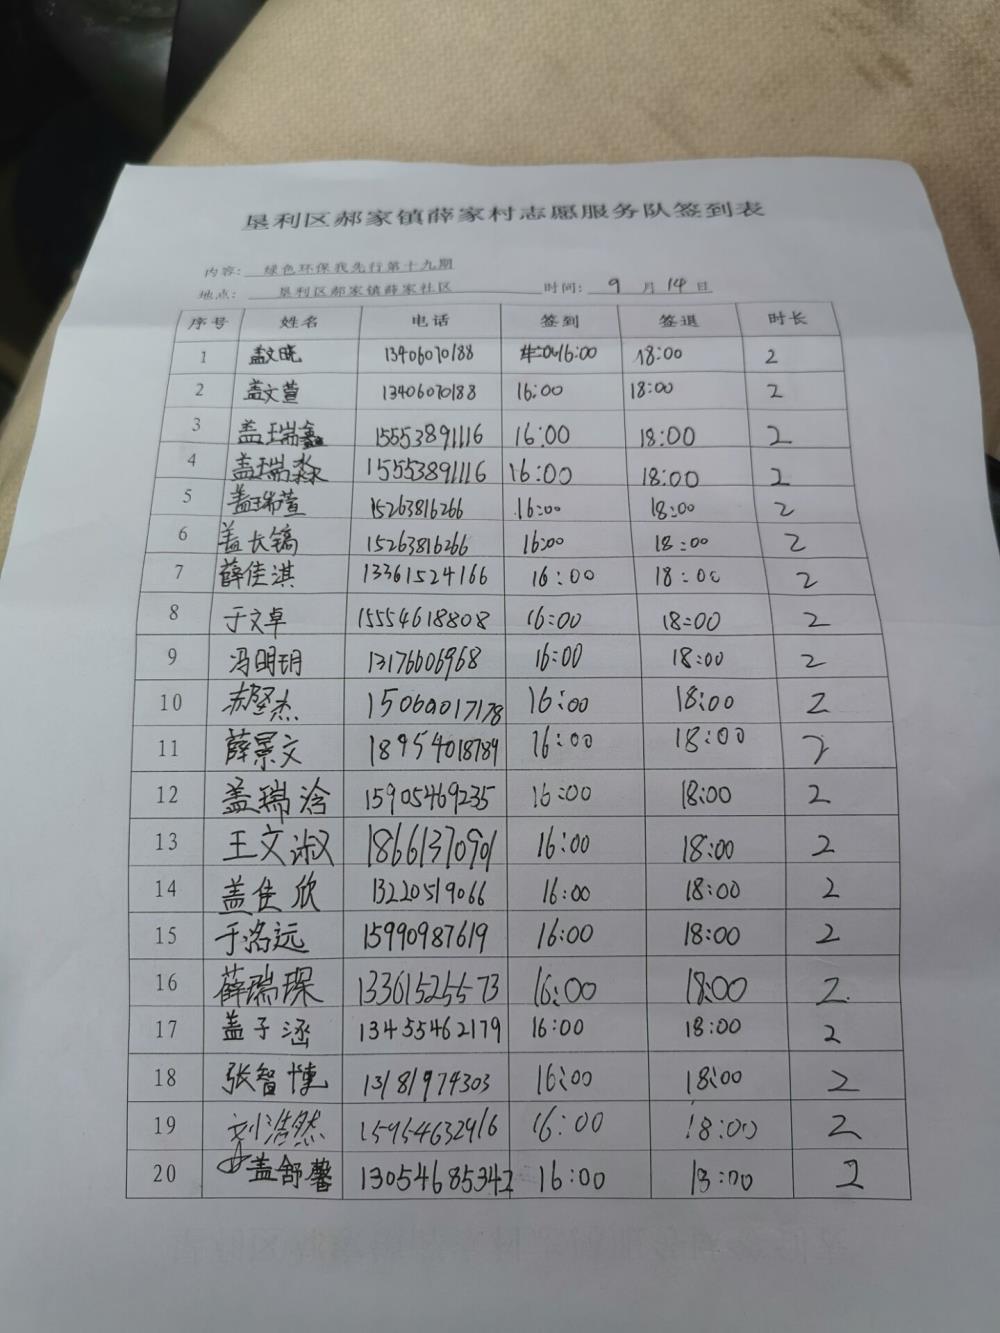 垦利区郝家镇薛家村志愿服务队签到表
内容: 绿色环保我先行第十九期
地点: 垦利区郝家镇薛家社区 时间: 9 月 14 日
序号 姓名 电话 签到 签退 时长
1 盖文晓 13406070188 16:00 18:00 2
2 盖文萱 13406070188 16:00 18:00 2
3 盖瑞鑫 15553891116 16:00 18:00 2
4 盖瑞淼 15553891116 16:00 18:00 2
5 盖瑞萱 15263816266 16:00 18:00 2
6 盖长镐 15263816266 16:00 18:00 2
7 薛佳淇 13361524166 16:00 18:00 2
8 于文卓 15554618808 16:00 18:00 2
9 冯明玥 13176606968 16:00 18:00 2
10 杰 16:00 18:00 2
11 薛景文 18954018789 16:00 18:00 2
12 盖瑞浛 15905469235 16:00 18:00 2
13 王文淑 18661370901 16:00 18:00 2
14 盖佳欣 13220519066 16:00 18:00 2
15 于洺远 15990987619 16:00 18:00 2
16 薛瑞琛 13361525573 16:00 18:00 2
17 盖子涵 13455462179 16:00 18:00 2
18 张智博 13181974303 16:00 18:00 2
19 刘浩然 15954632916 16:00 18:00 2
20 盖舒馨 13054685342 16:00 18:00 2